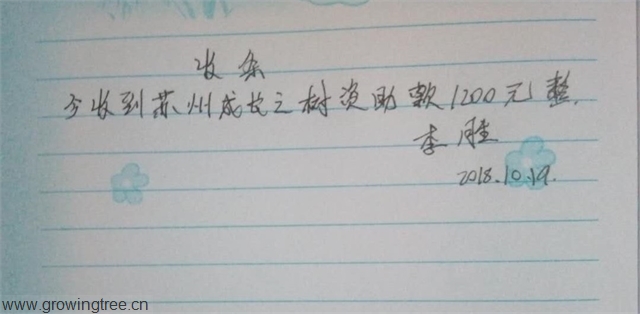 收条
今收到苏州成长之树资助款1200元整.
李胜
2018.10.19.
www.growingtree.cn